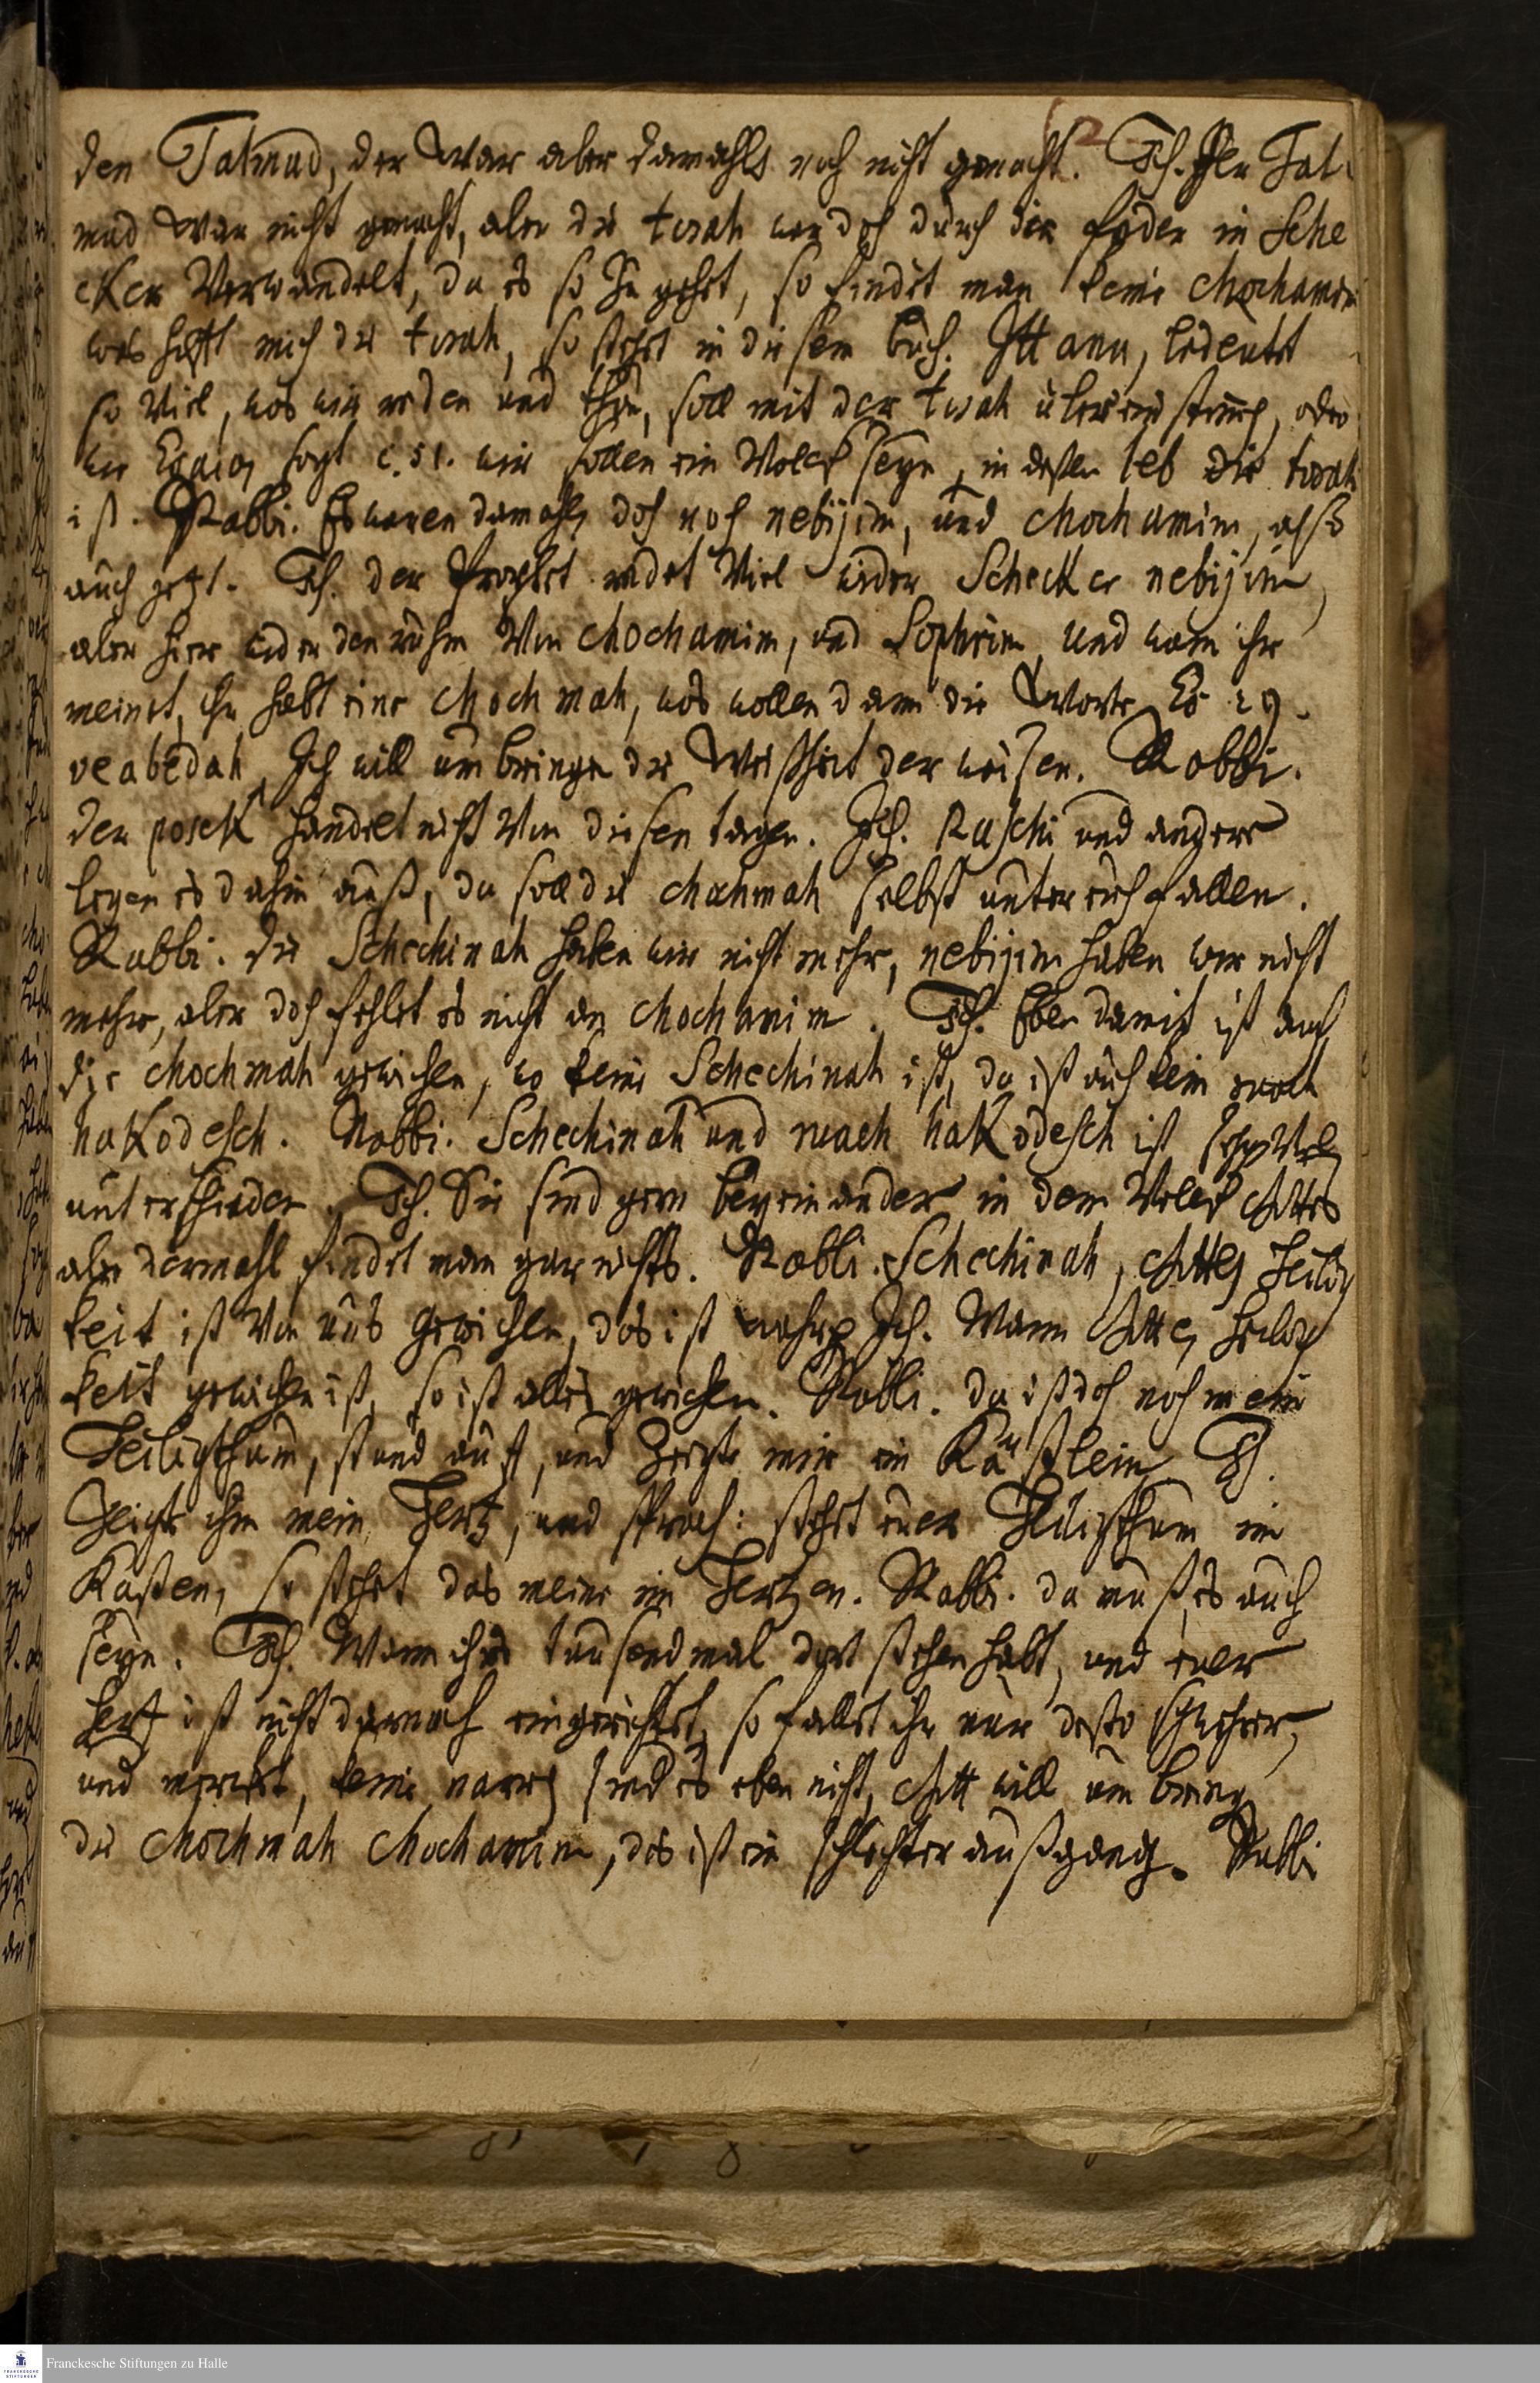 den Talmud, der war aber damahls noch nicht gemacht. Ich. Der Tal-
mud war nicht gemacht, aber die torah war doch durch die feder in Sche
cker Verwandelt, da es so zu gehet, so findet man keine chochamim
was hilfft mich die torah, so stehet in diesem buch. Ittanu, bedeutet
so Viel, was wir reden und thun, soll mit der torah überein stimen, oder
wie Esaias sagt c. 51. wir sollen ein Volck seyn, in deßen leb die torah
ist. Rabbi. Es waren damahls doch noch nebijim, und chochamim, also
auch jetzt. Ich. der Prophet redet Viel wider Schecker nebijim,
aber hier wider den ruhm Von chochamim, und Sophrim, und wann ihr
meinet, ihr habt eine chochmah, was wollen dann die Worte Es 29.
veabedah, Ich will umbringen die Weißheit der weisen. Rabbi.
der posek handelt nicht Von diesen tagen. Ich. Raschi und andere
legen es dahin auß, da soll die chochmah selbst unter euch fallen.
Rabbi. die Schechinah haben wir nicht mehr, nebijim haben wir nicht
mehr, aber doch fehlet es nicht an chochamim. Ich. Eben damit ist auch
die chochmah gewichen, wo keine Schechinah ist, da ist auch kein ruach
haKodesch. Rabbi. Schechinah und ruach haKodesch ist sehr Viel
unterschieden. Ich. Sie sind gern beyeinander in dem Volck Gottes
aber dermahl findet man gar nichts. Rabbi. Schechinah, Gottes Heilig
keit ist Von uns gewichen, das ist wahr. Ich. Wann Gottes Heilig
keit gewichen ist, so ist alles gewichen. Rabbi. da ist doch noch mein
Heiligthum, stund auff, und zeigte mir ein Kästlein. Ich.
Zeigte ihm mein Hertz, und sprach: stehet euer Heiligthum im
Kasten, so stehet das meine im Hertzen. Rabbi. da muß es auch
seyn. Ich. Wann ihrs tausendmal dort stehen habt, und euer
Hertz ist nicht darnach eingerichtet, so fallet ihr nur desto schwehrer,
und mercket, keine narren sind es eben nicht, Gott will umbringen
die chochmah chochamim, das ist ein schlechter außgang. Rabbi
Franckesche Stiftungen zu Halle